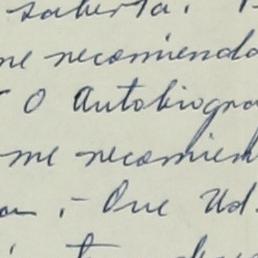 saberla.
me recomienda
O Autobiogra
me recomien
.- Que Ud.